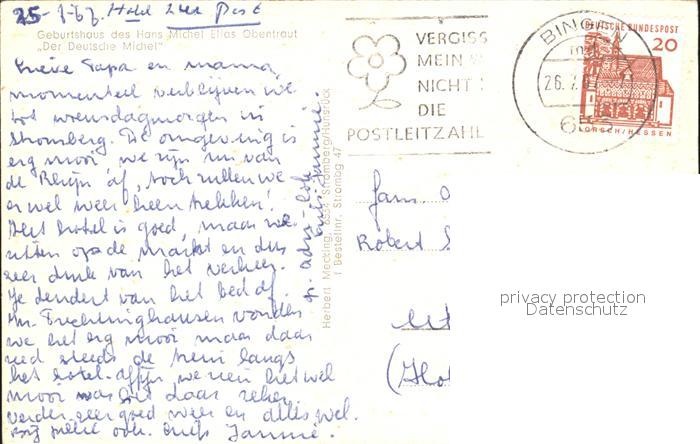 25-7-67. Hotel zur Post
Geburtshaus des Hans Michel Elias Obentraut
"Der Deutsche Michel"
Lieve Papa en mama,
momenteel verblijven we
tot woensdagmorgen in
Stromberg. De omgeving is
erg mooi we zijn nu van
de Rhijn af, toch zullen we
er wel weer heen trekken!
Het hotel is goed, maar we
zitten op de markt en dus
zeer druk van het verkeer.
Je dendert van het bed af.
In Trechtinghausen vonden
we het erg mooi maar daar
reed steeds de trein langs
het hotel. Afijn, we zien het wel
mooi was het daar zeker.
Verder zeer goed weer en alles wel.
ook. Jannie.
Herbert Mecking, 6534 Stromberg/Hunsrück
1 Bestellnr. Stromag 47
VERGISS
MEIN
NICHT
DIE
POSTLEITZAHL
BINGEN
26.7.6
DEUTSCHE BUNDESPOST
20
LORSCH/HESSEN
Fam.
Robert S
(Hol
privacy protection
Datenschutz